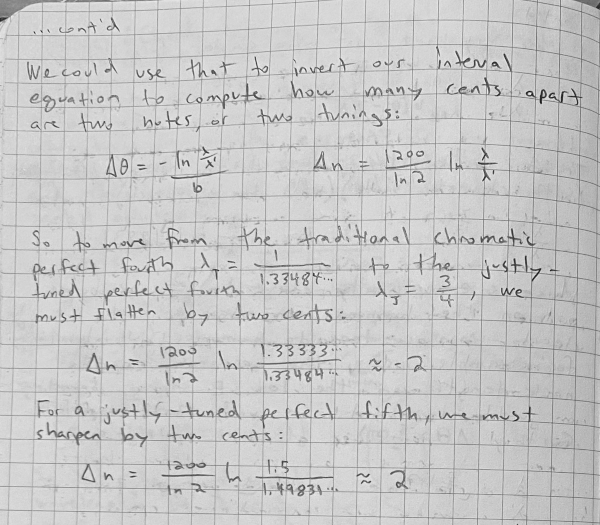 ... cont'd
We could use that to invert our interval
equation to compute how many cents apart
are two notes, or two tunings:
Δθ = -ln λ/λ' / b    Δn = 1200/ln 2 ln λ/λ'
So to move from the traditional chromatic
perfect fourth λ_T = 1/1.33484... to the justly-
tuned perfect fourth λ_J = 3/4, we
must flatten by two cents:
Δn = 1200/ln 2 ln 1.33333.../1.33484... ≈ -2
For a justly-tuned perfect fifth, we must
sharpen by two cents:
Δn = 1200/ln 2 ln 1.5/1.49831... ≈ 2